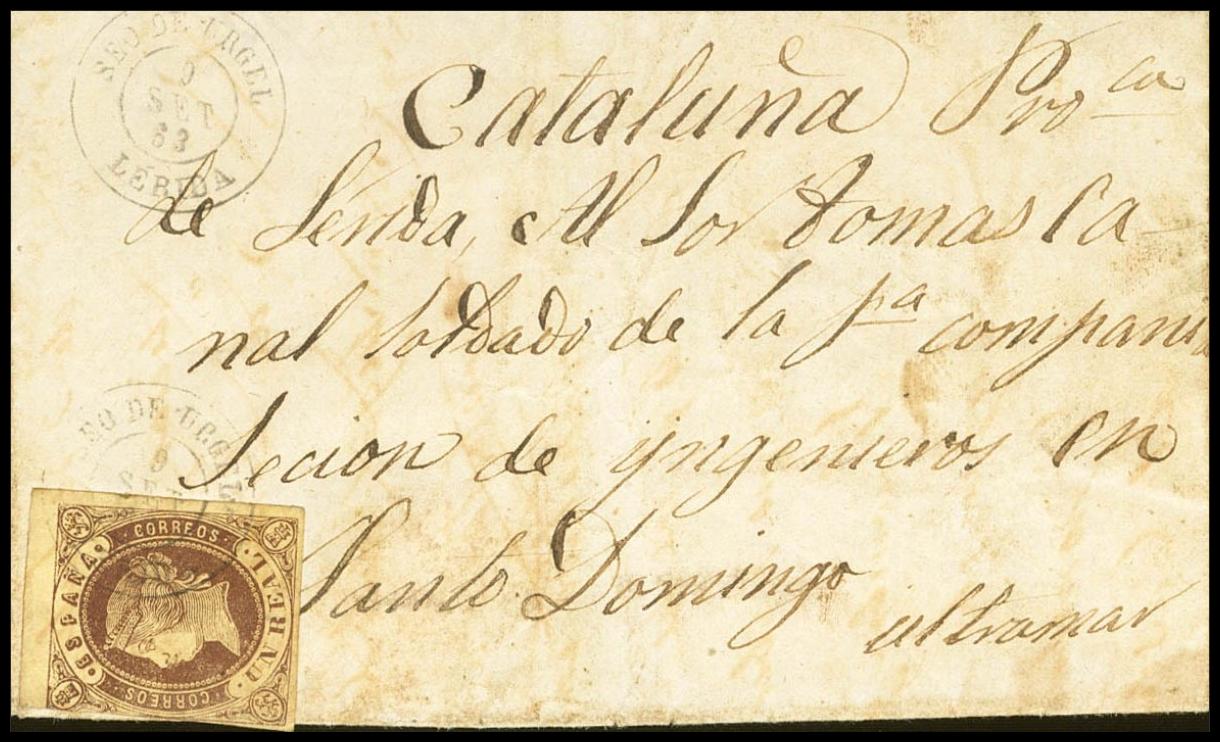 SEO DE URGEL
9
SET
63
LÉRIDA
Cataluña Pro^ca
de Lérida, Al Sor tomas Ca-
nal soldado de la p^a compania
Secion de yngenieros en
Santo Domingo
ultramar
SEO DE URGEL
9
SET
CORREOS
ESPAÑA
UN REAL
CORREOS